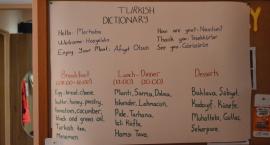 TURKISH
DICTIONARY
Hello: Merhaba
Welcome: Hoşgeldin
Enjoy Your Meal: Afiyet Olsun
How are you?: Nasılsın?
Thank you: Teşekkürler
See you: Görüşürüz
Breakfast
Egg, bread, cheese,
butter, honey, parsley,
tomatoes, cucumber,
black and green olives,
Turkish tea,
Menemen
Lunch - Dinner
Mantı, Sarma, Dolma,
İskender, Lahmacun,
Pide, Tarhana,
İçli Köfte,
Desserts
Baklava, Sütlaç,
Kadayıf, Künefe,
Muhallebi, Güllaç,
Şekerpare.